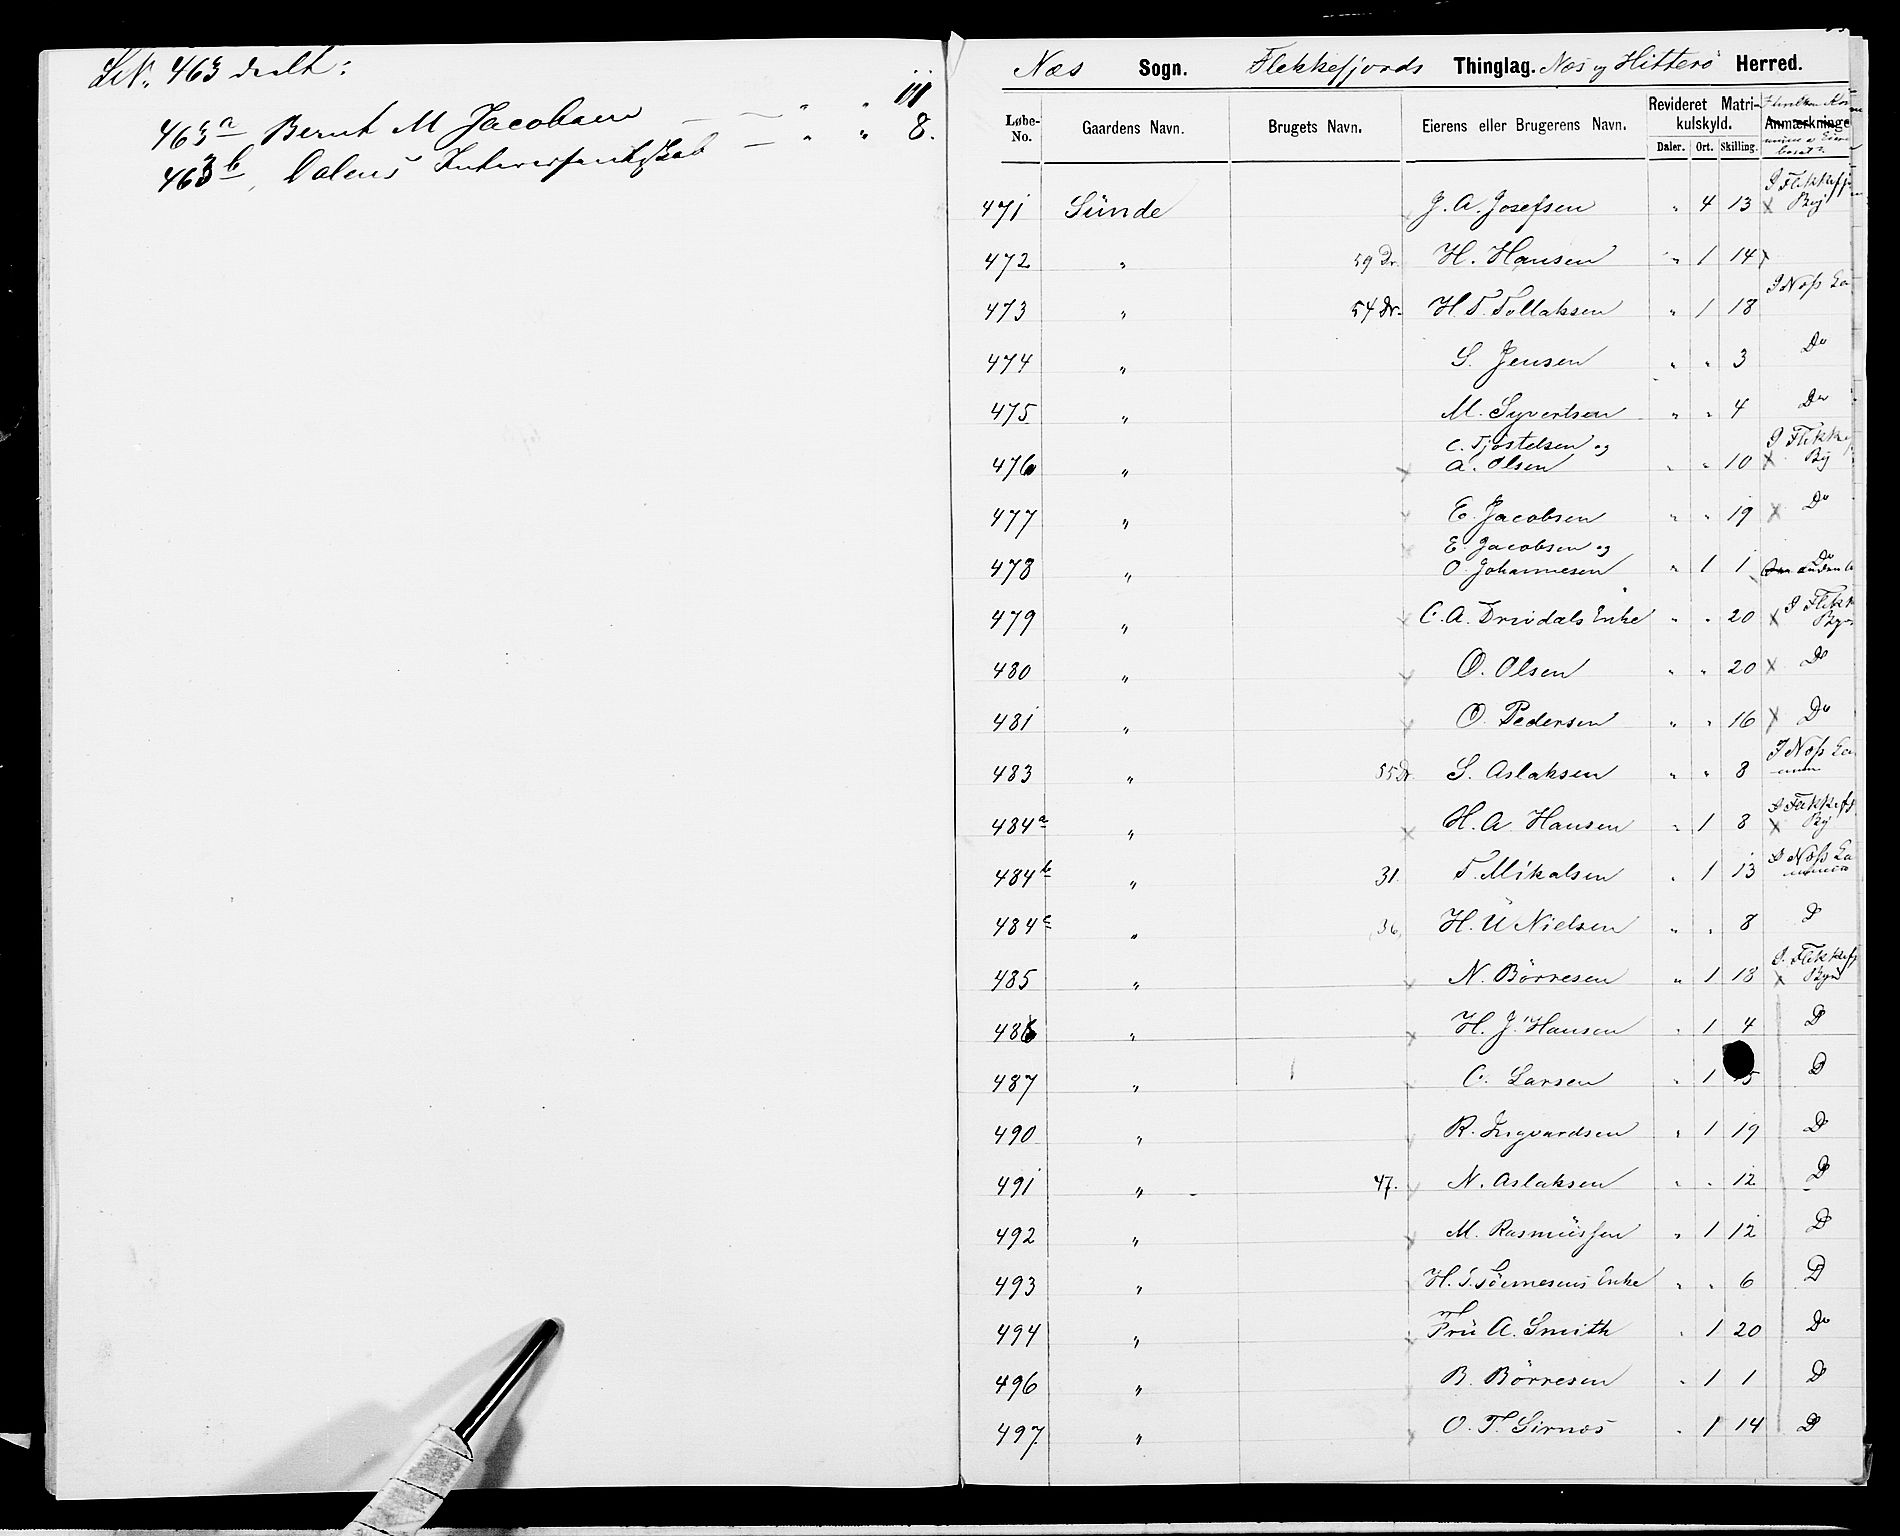 LN. 463 deelt:
463a Bernt M Jacobsen — — " " 11
463b Calens Interessentskab — " " 8.
Næs Sogn. Flekkefjords Thinglag. Næs og Hitterö Herred.
Løbe-No. Gaardens Navn. Brugets Navn. Eierens eller Brugerens Navn. Revideret Matrikulskyld. Daler. Ort. Skilling. Anmærkninge
471 Sünde J. A. Josefsen " 4 13 I Flekkefj
x By
472 " 59 Dr. H. Hansen " 1 14 x
473 " 54 Dr. H. T. Tollaksen " 1 18 I Næss La
474 " S. Jensen " " 3 Do
475 " M. Syvertsen " " 4 Do
476 " C. Tjöstelsen og
A. Olsen " " 10 x I Flekkef By
477 " E. Jacobsen " " 19 x Do
478 " E. Jacobsen og
O. Johannesen " 1 1 Do
479 " C. A. Drivdals Enke " " 20 x I Flekk By
480 " O. Olsen " " 20 x D
481 " O. Pedersen " " 16 x Do
483 " 55 Dr. S. Aslaksen " " 8 I Næss La
484a " H. A. Hansen " 1 8 x I Flekkefj By
484b " 31 T. Mikalsen " 1 13 I Næss La
484c " 36 H. U Nielsen " " 8 D
485 " N. Börresen " 1 18 x I Flekkefj By
486 " H. J. Hansen " 1 4 D
487 " C. Larsen " 1 15 D
490 " R. Ingvardsen " 1 19 D
491 " 47. N. Aslaksen " " 12 D
492 " M. Rasmüssen " 1 12 D
493 " H. T. Enke " " 6 D
494 " Frü A. Smith " 1 20 Do
496 " B. Börresen " 1 1 D
497 " O. T. Sirnæs " 1 14 D